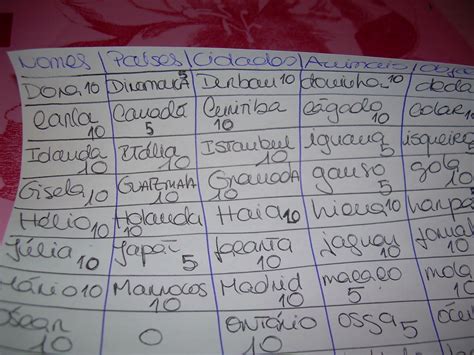 Nomes Países Cidades Animais
Dora 10 Dinamarca 5 Durban 10 doninha 10 deda
Carla 10 Canadá 5 Curitiba 10 Cágado 10 Colar
Idanda 10 Itália 10 Istambul 10 iguana 5 isqueiro
Gisela 10 GUATEMALA 10 Granada 10 ganso 5 gola 10
Hélio 10 Holanda 10 Haia 10 hiena 10 harpa
Júlia 10 Japão 5 10 jaguar 10 jornal 10
Mário 10 Marrocos 10 Madrid 10 macaco 5 mola 10
Oscar 10 0 Ontário 10 ossga 5